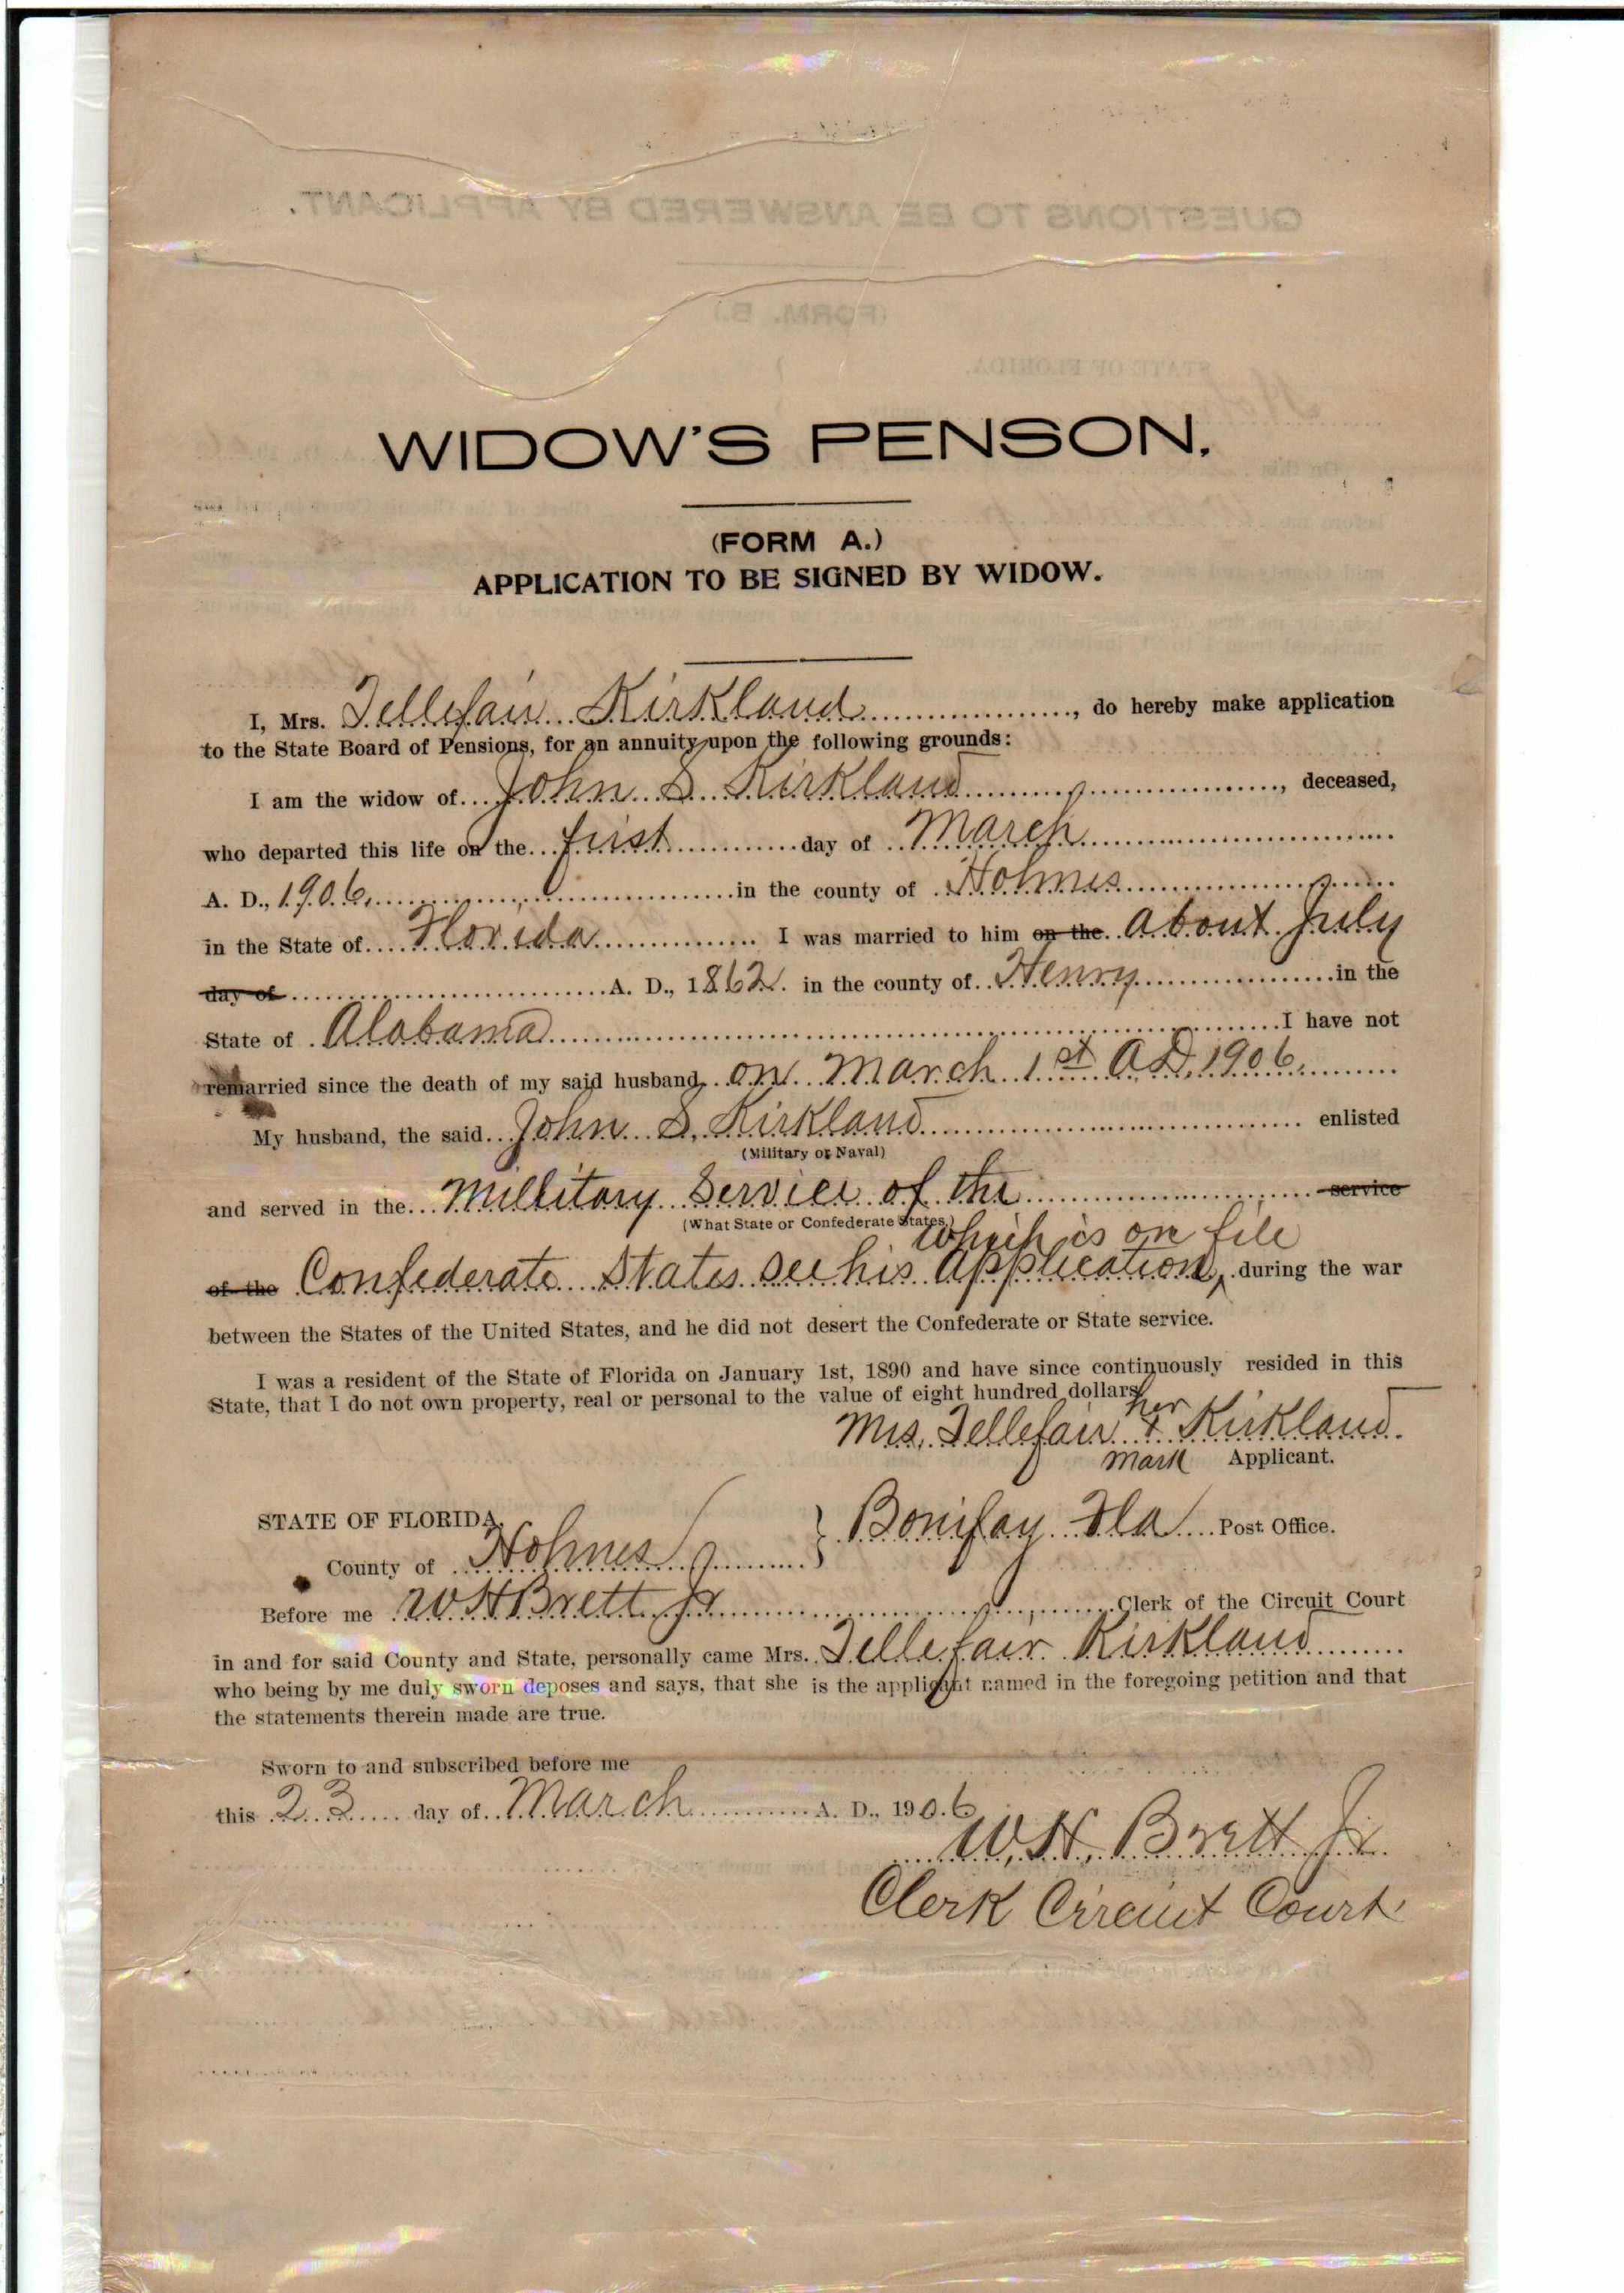 WIDOW'S PENSON.
(FORM A.)
APPLICATION TO BE SIGNED BY WIDOW.
I, Mrs. Tellefair Kirkland, do hereby make application
to the State Board of Pensions, for an annuity upon the following grounds:
I am the widow of John S. Kirkland, deceased,
who departed this life on the first day of March
A. D., 1906, in the county of Holmes
in the State of Florida I was married to him on the About July
day of A. D., 1862 in the county of Henry in the
State of Alabama I have not
remarried since the death of my said husband on March 1st A.D. 1906.
My husband, the said John S. Kirkland enlisted
(Military or Naval)
and served in the Millitary Service of the service
(What State or Confederate States.)
which is on file
of the Confederate States see his application, during the war
between the States of the United States, and he did not desert the Confederate or State service.
I was a resident of the State of Florida on January 1st, 1890 and have since continuously resided in this
State, that I do not own property, real or personal to the value of eight hundred dollars.
her
Mrs. Tellefair + Kirkland.
mark Applicant.
STATE OF FLORIDA,
Bonifay Fla Post Office.
County of Holmes
Before me W H Brett Jr Clerk of the Circuit Court
in and for said County and State, personally came Mrs. Tellefair Kirkland
who being by me duly sworn deposes and says, that she is the applicant named in the foregoing petition and that
the statements therein made are true.
Sworn to and subscribed before me
this 23 day of March A. D., 1906
W. H. Brett Jr.
Clerk Circuit Court
QUESTIONS TO BE ANSWERED BY APPLICANT.
(FORM. B.)
STATE OF FLORIDA.